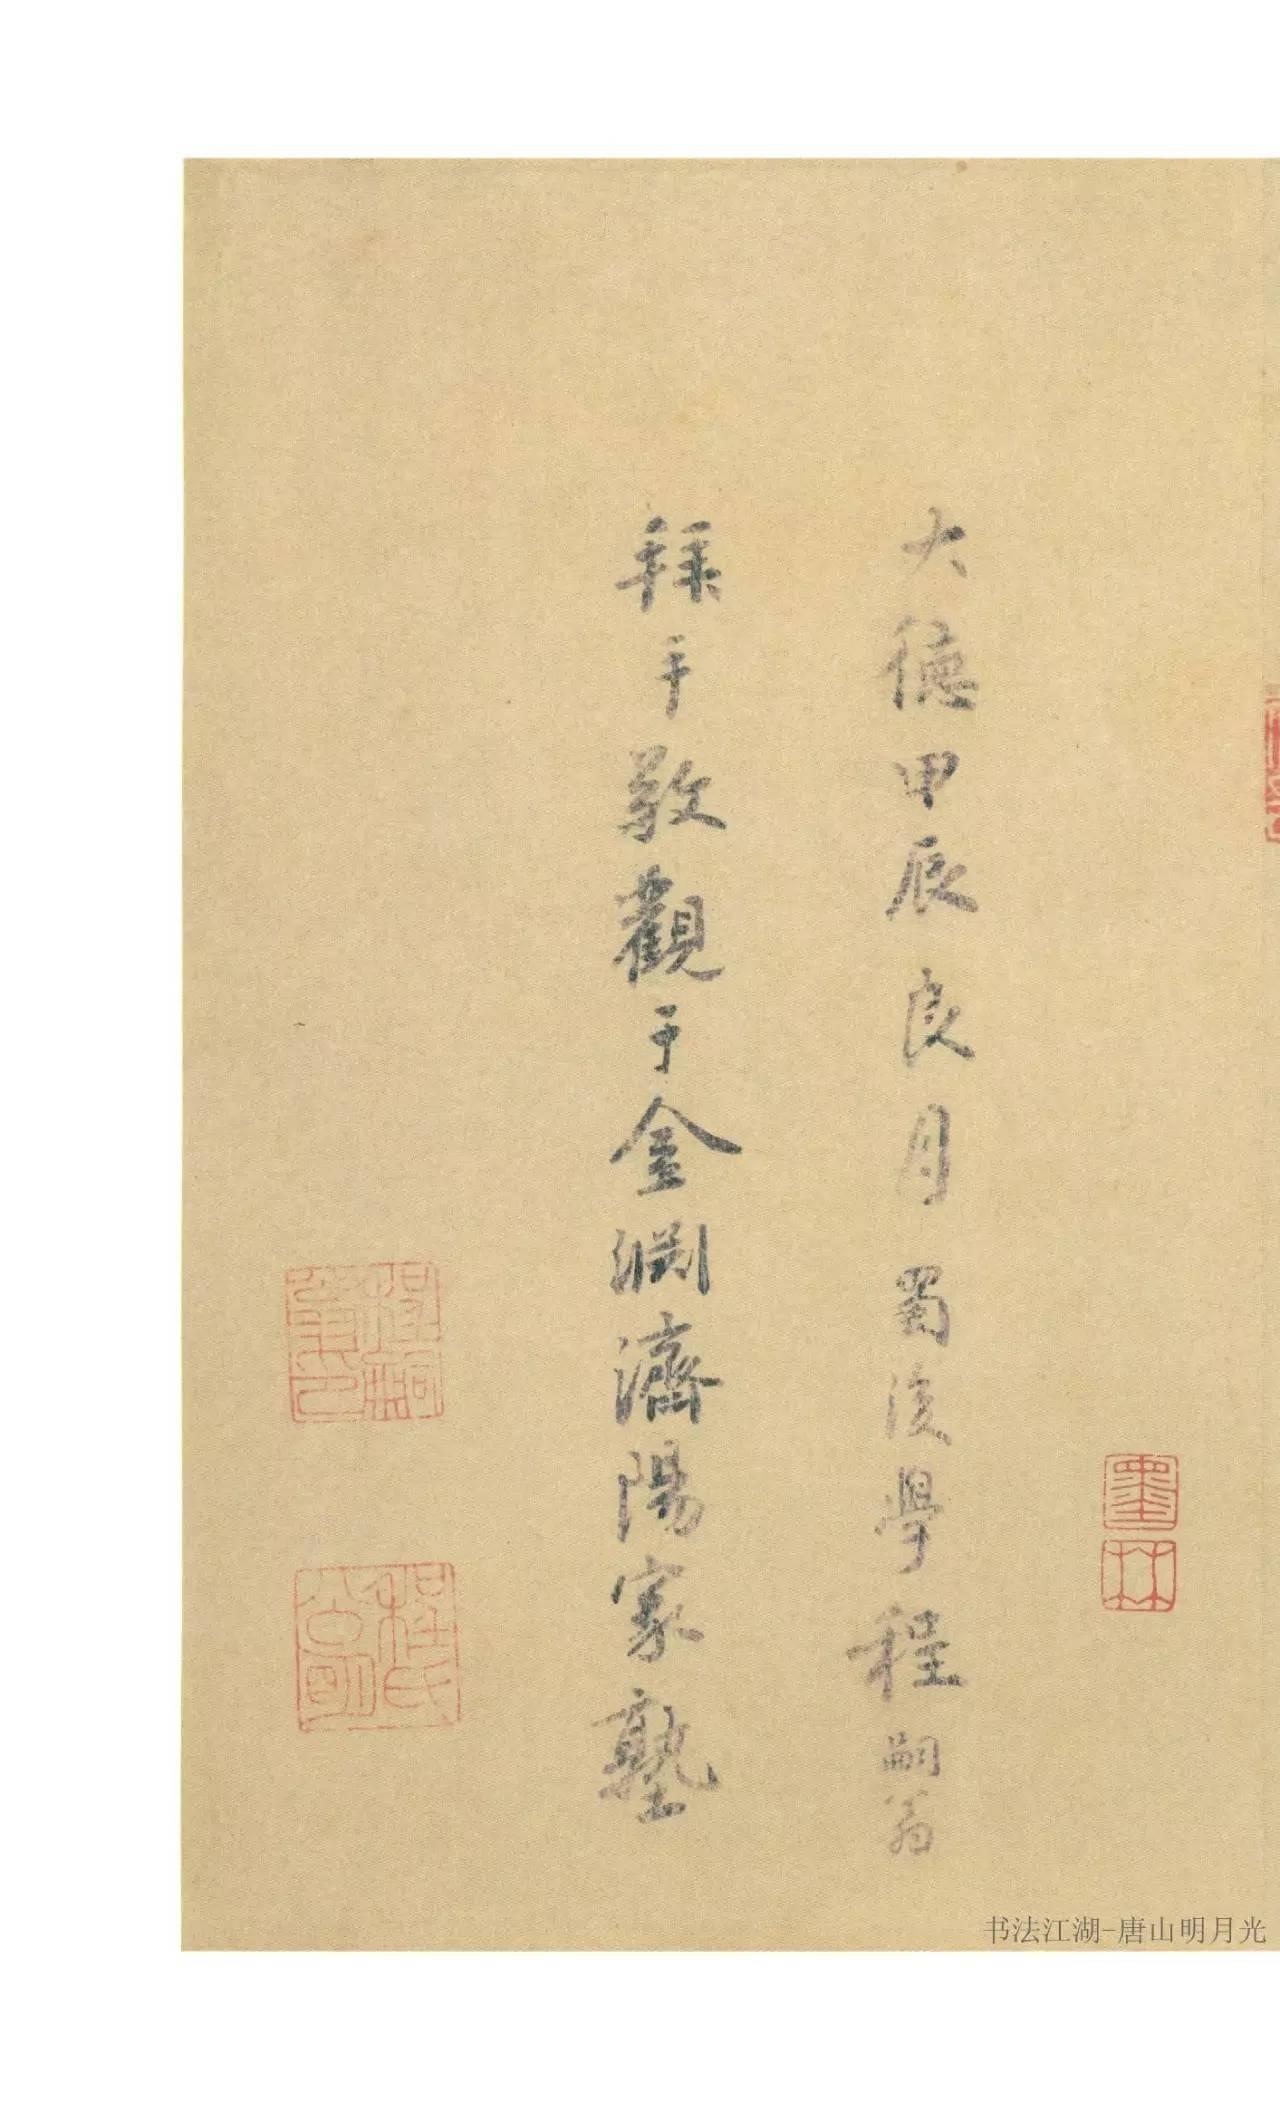 大德甲辰良月蜀後學程嗣翁
拜手敬觀于金淵濟陽家塾
墨林
程氏
書法江湖-唐山明月光